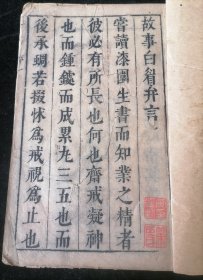 故事白眉弁言
嘗讀漆園生書而知業之精者
彼必有所長也何也齋戒凝神
也而鍾鐻而成累九三五也而
後承蜩若掇怵爲戒視爲止也